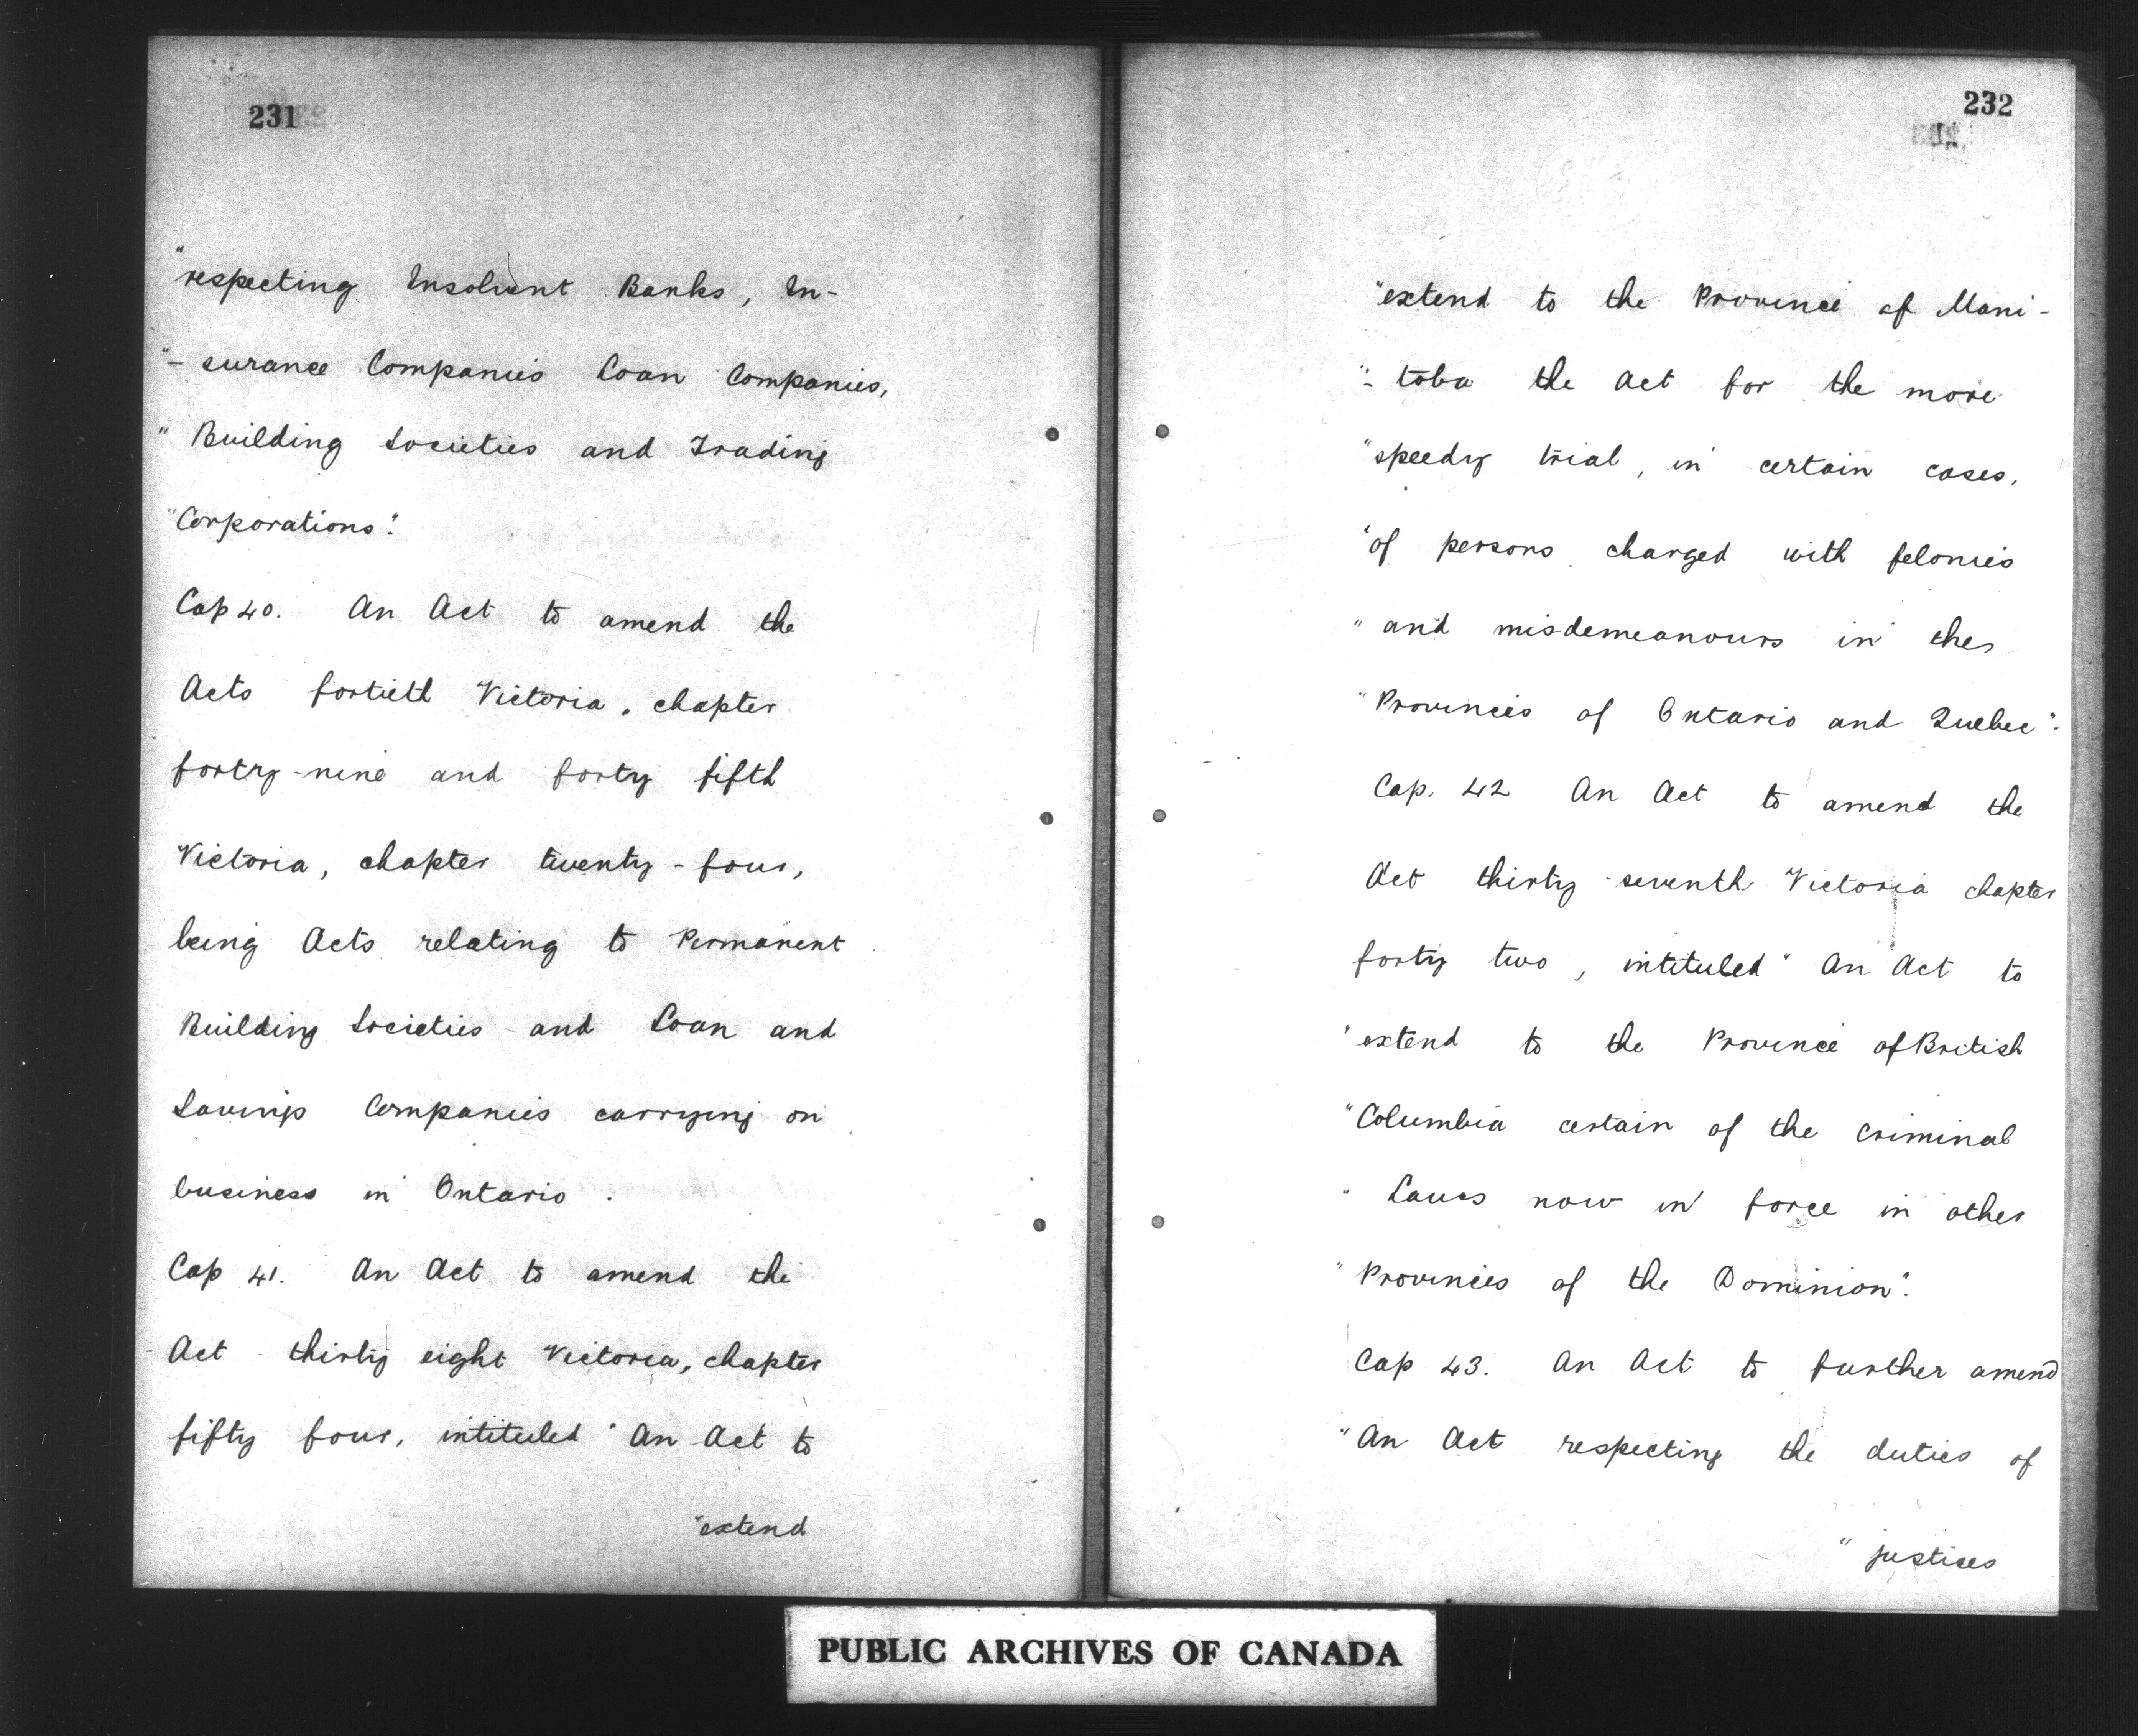 231
"respecting Insolvent Banks, In-
"- surance Companies Loan Companies,
" Building Societies and Trading
"Corporations".
Cap 40. An Act to amend the
Acts fortieth Victoria, chapter
forty-nine and forty fifth
Victoria, chapter twenty-four,
being Acts relating to Permanent
Building Societies and Loan and
Savings Companies carrying on
business in Ontario.
Cap 41. An Act to amend the
Act thirty eight Victoria, chapter
fifty four, intituled "An Act to
"extend
232
"extend to the Province of Mani-
"- toba the Act for the more
"speedy trial, in certain cases,
"of persons charged with felonies
"and misdemeanours in the
"Provinces of Ontario and Quebec".
Cap. 42 An Act to amend the
Act thirty-seventh Victoria chapter
forty two, intituled "An Act to
"extend to the Province of British
"Columbia certain of the criminal
" Laws now in force in other
"Provinces of the Dominion".
Cap 43. An Act to further amend
"An Act respecting the duties of
" justices
PUBLIC ARCHIVES OF CANADA